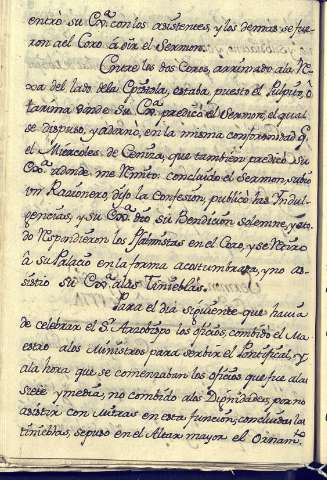 entrò su Exᵃ. con los asistentes, y los demas se fue-
ron al Coro a oìr el Sermon.
Entre los dos Coros, arrimado ala Re-
xa del lado dela Epistola, estaba puesto el Pulpito, ò
tarima donde su Exᵃ. predicò el Sermon, el qual
se dispuso, y adornò, en la misma conformidad q̃
el Miercoles de Ceniza, que tambien predicò su
Exᵃ. adonde me Remito. concluido el Sermon, subiò
un Racionero, dijo la Confesion, publicò las Indul-
gencias, y su Exᵃ. dio su Bendicion solemne, y to-
do Respondieron los Psalmistas en el Coro, y se Retirò
à su Palacio en la forma acostumbrada, y no a-
sistiò su Exᵃ. alas Tinieblas.
Para el dia siguiente que havia
de celebrar el Sʳ. Arzobispo los oficios, combidò el Ma-
estro alos Ministros para serbir el Pontifical, y
ala hora que se comenzaban los oficios que fue alas
siete y media, no combidò alas Dignidades, por no
asistir con Mitras en esta funcion; concluidas las
tinieblas, se puso en el Altar mayor el Ornamᵗᵒ.